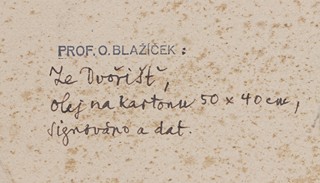 PROF. O. BLAŽÍČEK :
Ze Dvořišť,
olej na kartonu 50 x 40 cm,
signováno a dat.